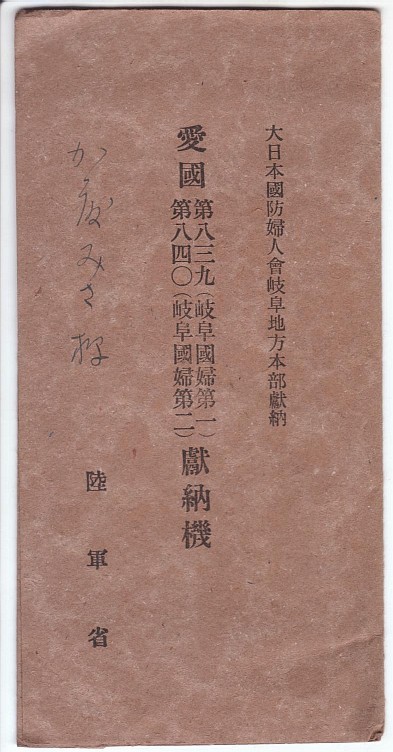 大日本國防婦人會岐阜地方本部獻納
愛國第八三九(岐阜國婦第一)
第八四〇(岐阜國婦第二)獻納機
陸軍省